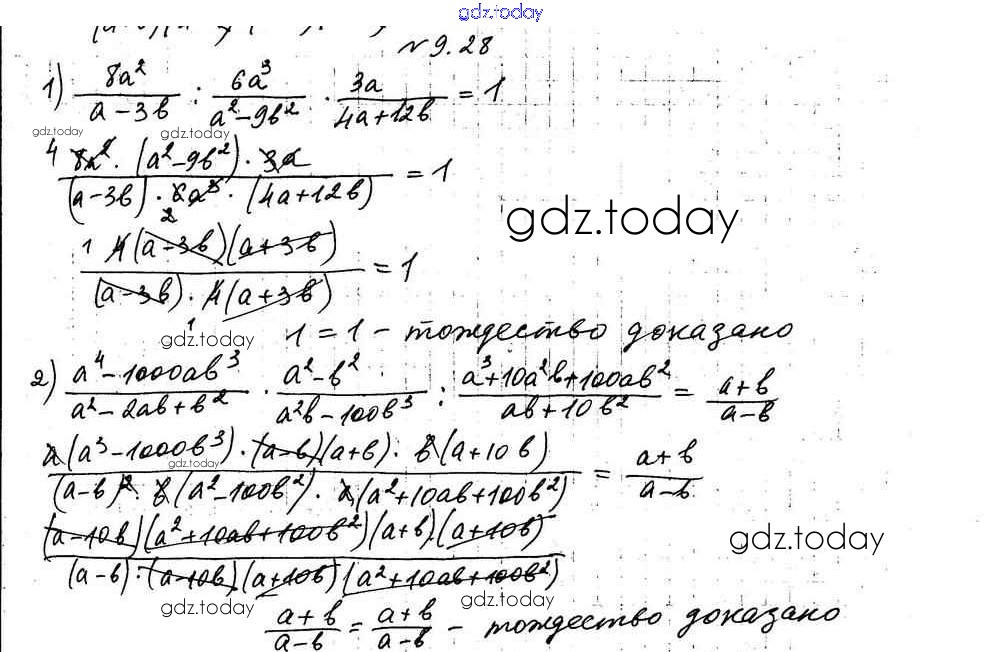 gdz.today
№ 9.28
1) 8a²/(a-3b) : 6a³/(a²-9b²) · 3a/(4a+12b) = 1
gdz.today gdz.today
4 8a² · (a²-9b²) · 3a / (a-3b) · 6a³ · (4a+12b) = 1
2
gdz.today
1 4(a-3b)(a+3b) / (a-3b) · 4(a+3b) = 1
1
gdz.today 1 = 1 - тождество доказано
2) (a⁴-1000ab³)/(a²-2ab+b²) · (a²-b²)/(a²b-100b³) : (a³+10a²b+100ab²)/(ab+10b²) = (a+b)/(a-b)
a(a³-1000b³) · (a-b)(a+b) · b(a+10b) / (a-b)² · b(a²-100b²) · a(a²+10ab+100b²) = (a+b)/(a-b)
gdz.today
(a-10b)(a²+10ab+100b²)(a+b)·(a+10b) / (a-b)·(a-10b)(a+10b)(a²+10ab+100b²)
gdz.today
gdz.today gdz.today
(a+b)/(a-b) = (a+b)/(a-b) - тождество доказано